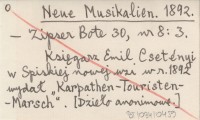 o
Neue Musikalien. 1892.
— Zipser Bote 30, nr 8: 3.
Księgarz Emil Csetényi
w Spiskiej nowej wze w r. 1892
wydał „Karpathen-Touristen-
-Marsch". [Dzieło anonimowe.]